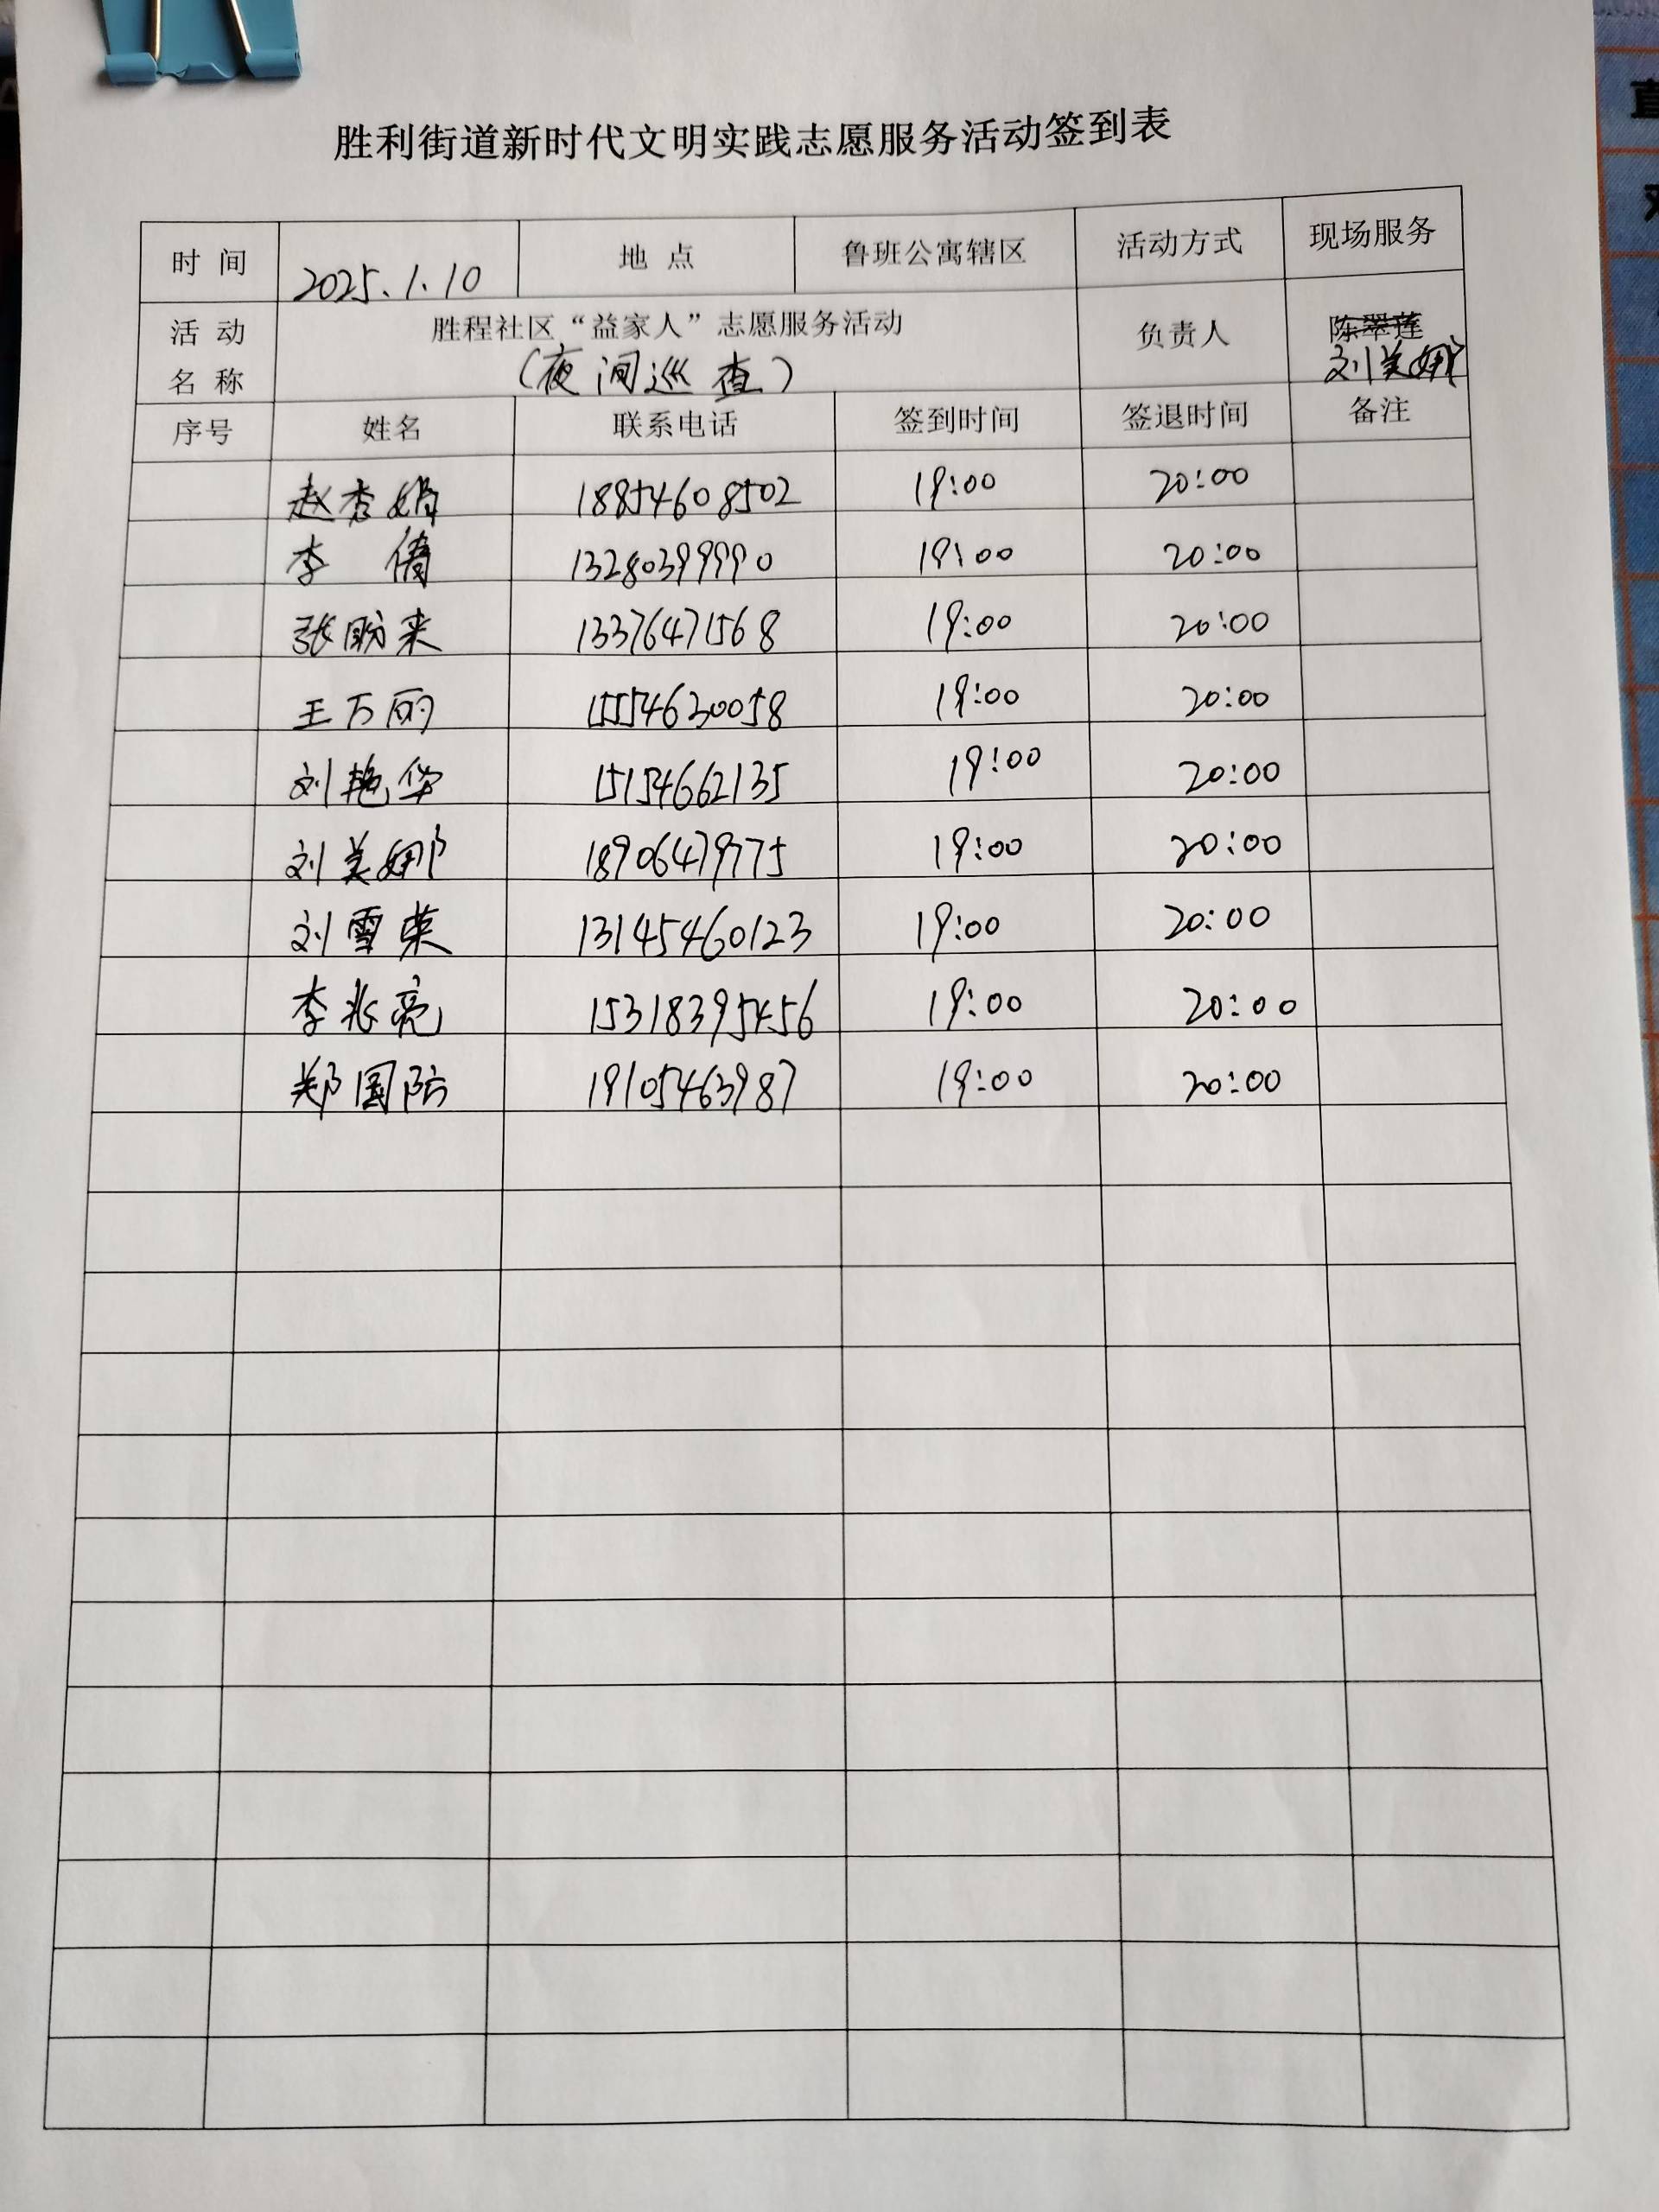 胜利街道新时代文明实践志愿服务活动签到表
时 间 2025.1.10 地 点 鲁班公寓辖区 活动方式 现场服务
活 动 名 称 胜程社区“益家人”志愿服务活动 负责人 陈翠莲
(夜间巡查) 刘美娜
序号 姓名 联系电话 签到时间 签退时间 备注
赵杏娟 18854608502 19:00 20:00
李倩 13280399990 19:00 20:00
张盼来 13376471568 19:00 20:00
王万丽 15554630058 19:00 20:00
刘艳华 15154662135 19:00 20:00
刘美娜 18906479775 19:00 20:00
刘雪荣 13145460123 19:00 20:00
李兆亮 15318395456 19:00 20:00
郑国防 19105463987 19:00 20:00
直